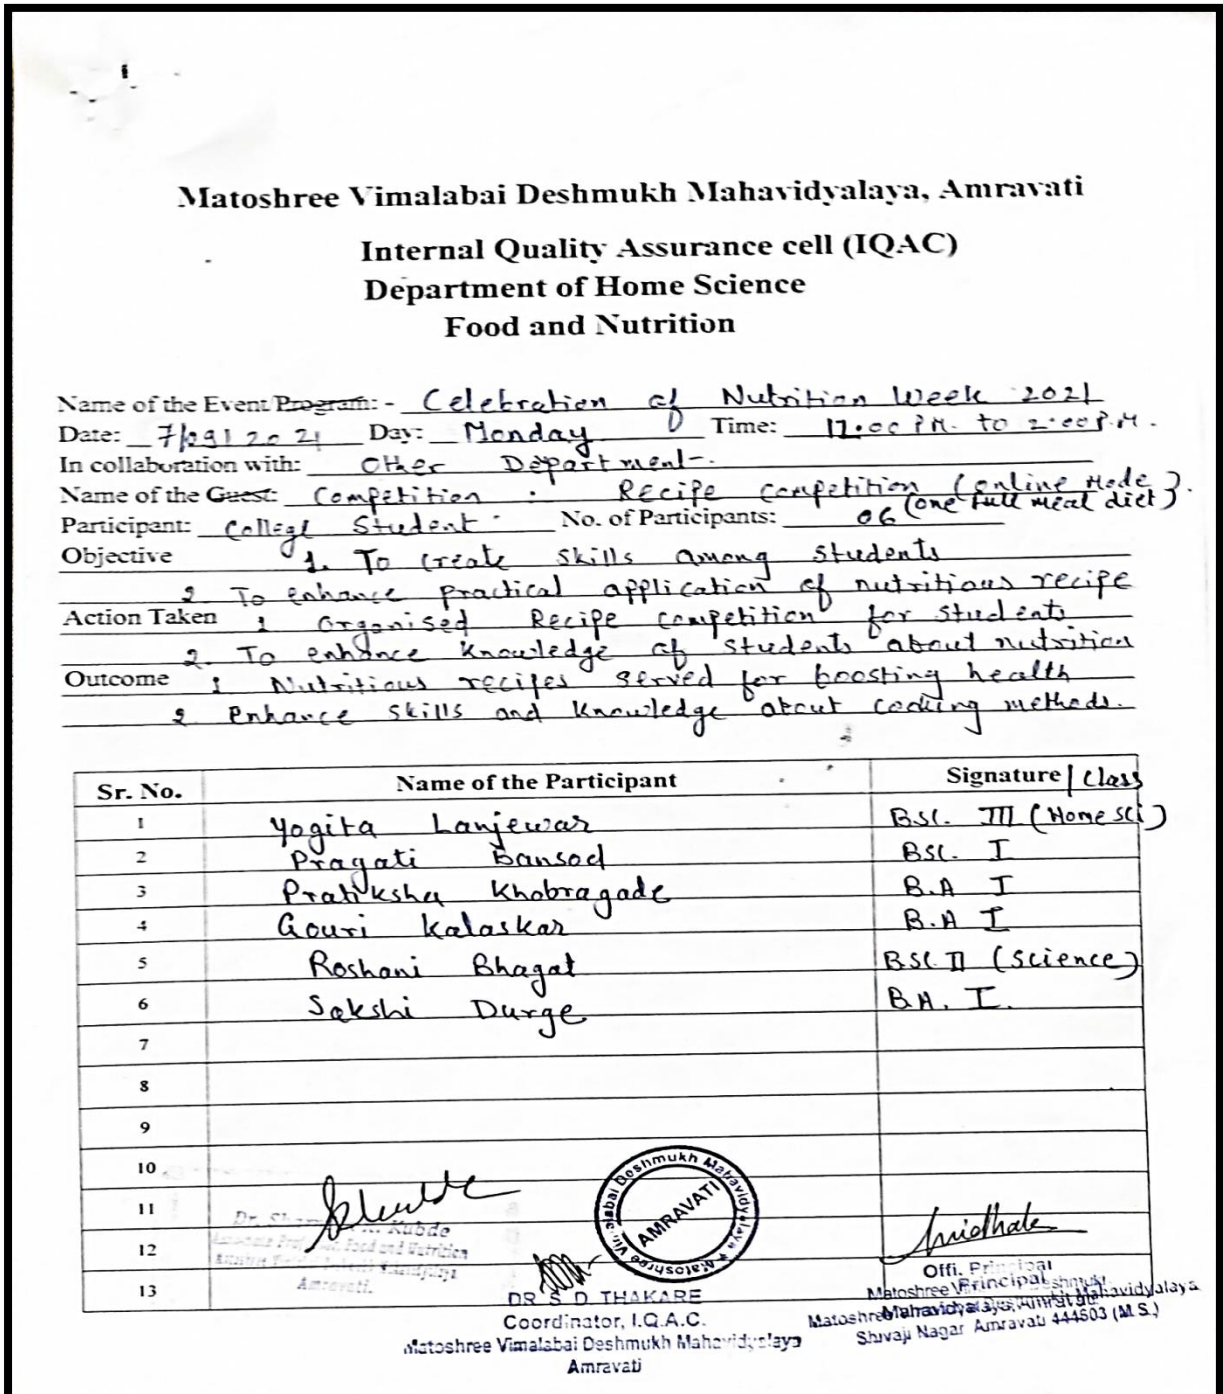 Matoshree Vimalabai Deshmukh Mahavidyalaya, Amravati
Internal Quality Assurance cell (IQAC)
Department of Home Science
Food and Nutrition
Name of the Event/Program: - Celebration of Nutrition Week 2021
Date: 7/09/2021 Day: Monday Time: 12.00 P.M. to 2.00 P.M.
In collaboration with: Other Department
Name of the Guest: Competition : Recipe competition (online Mode).
(one full meal diet)
Participant: College Student No. of Participants: 06
Objective 1. To create skills among students
2. To enhance practical application of nutritious recipe
Action Taken 1 Organised Recipe competition for students
2. To enhance knowledge of students about nutrition
Outcome 1 Nutritious recipes served for boosting health
2 Enhance skills and knowledge about cooking methods.
Sr. No. Name of the Participant Signature | Class
1 Yogita Lanjewar BSc. III (Home sci)
2 Pragati Bansod BSc. I
3 Pratiksha Khobragade B.A I
4 Gouri Kalaskar B.A I
5 Roshani Bhagat BSc. II (Science)
6 Sakshi Durge B.A. I.
7
8
9
10
11
12
13
Kubde
Food and Nutrition
Amravati.
Vimalabai Deshmukh Mahavidyalaya * Matoshree
AMRAVATI
DR S D THAKARE
Coordinator, I.Q.A.C.
Matoshree Vimalabai Deshmukh Mahavidyalaya
Amravati
Offi. Principal
Principal
Mahavidyalaya
Shivaji Nagar Amravati 444603 (M.S.)